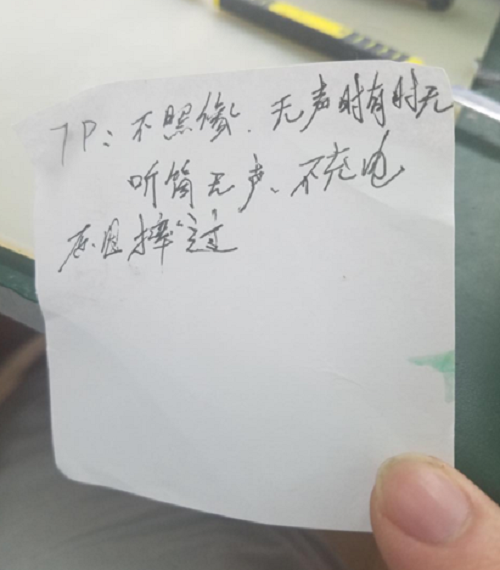 7P: 不照像、无声时有时无
听筒无声、不充电
原因摔过